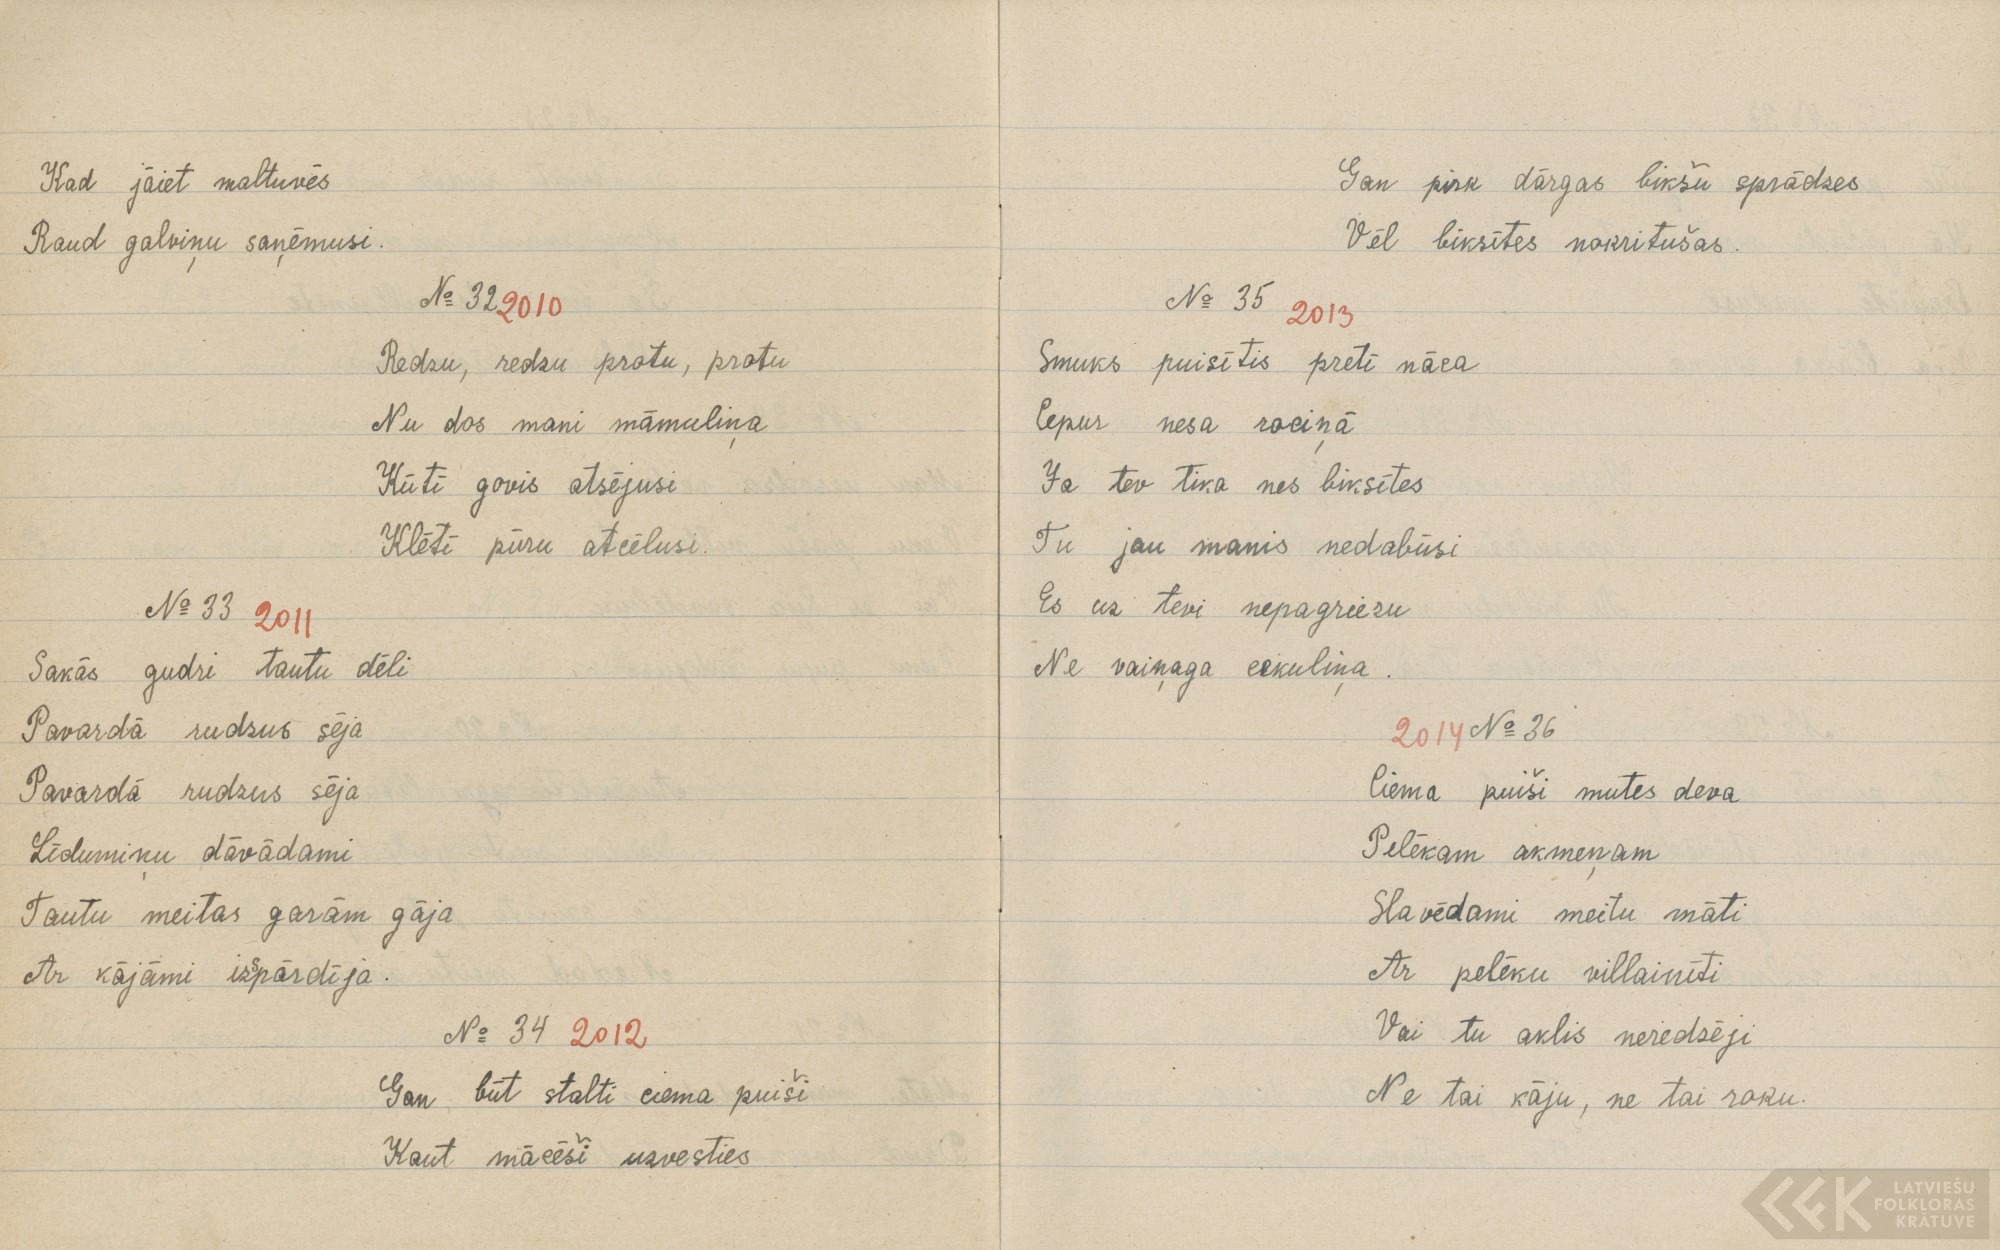 Kad jāiet maltuvēs
Raud galviņu saņēmusi.
№ 32 2010
Redzu, redzu protu, protu
Nu dos mani māmuliņa
Kūtī govis atsējusi
Klētī pūru atcēlusi.
№ 33 2011
Sakās gudri tautu dēli
Pavardā rudzus sēja
Pavardā rudzus sēja
Līdumiņu dāvādami
Tautu meitas garām gāja
Ar kājāmi izspārdīja.
№ 34 2012
Gan būt stalti ciema puiši
Kaut mācēši uzvesties
Gan pirk dārgas bikšu sprādzes
Vēl biksītes nokritušas.
№ 35 2013
Smuks puisītis pretī nāca
Cepur nesa rociņā
Ja tev tika nes biksītes
Tu jau manis nedabūsi
Es uz tevi nepagriezu
Ne vaiņaga cekuliņa.
2014 № 36
Ciema puiši mutes deva
Pelēkam akmeņam
Slavēdami meitu māti
Ar pelēku villainīti
Vai tu aklis neredzēji
Ne tai kāju, ne tai roku.
LATVIEŠU
FOLKLORAS
KRĀTUVE